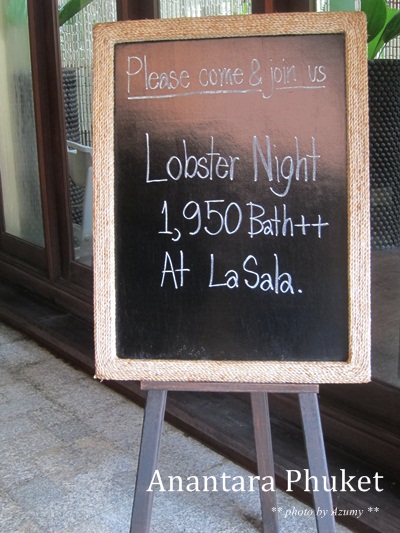 Please come & join us
Lobster Night
1,950 Bath++
At La Sala.
Anantara Phuket
** photo by Azumy **